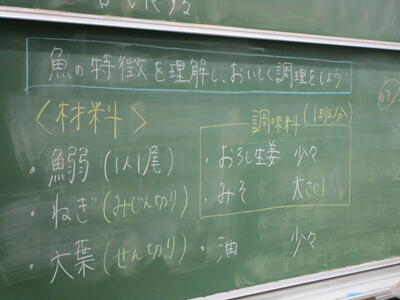 魚の特徴を理解し、おいしく調理をしよう!
<材料>
・鰯(1人1尾)
・ねぎ(みじん切り)
・大葉(せん切り)
調味料(1班分)
・おろし生姜 少々
・みそ 大さじ1
・油 少々